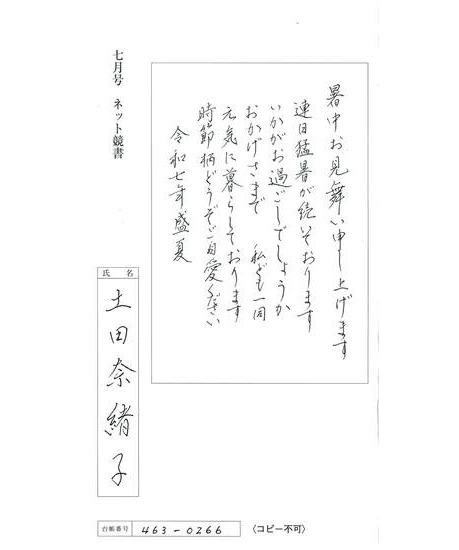 暑中お見舞い申し上げます
連日猛暑が続いております
いかがお過ごしでしょうか
おかげさまで 私ども一同
元気に暮らしております
時節柄どうぞご自愛ください
令和七年盛夏
七月号 ネット競書
氏名
土田奈緒子
台帳番号 463-0266
〈コピー不可〉